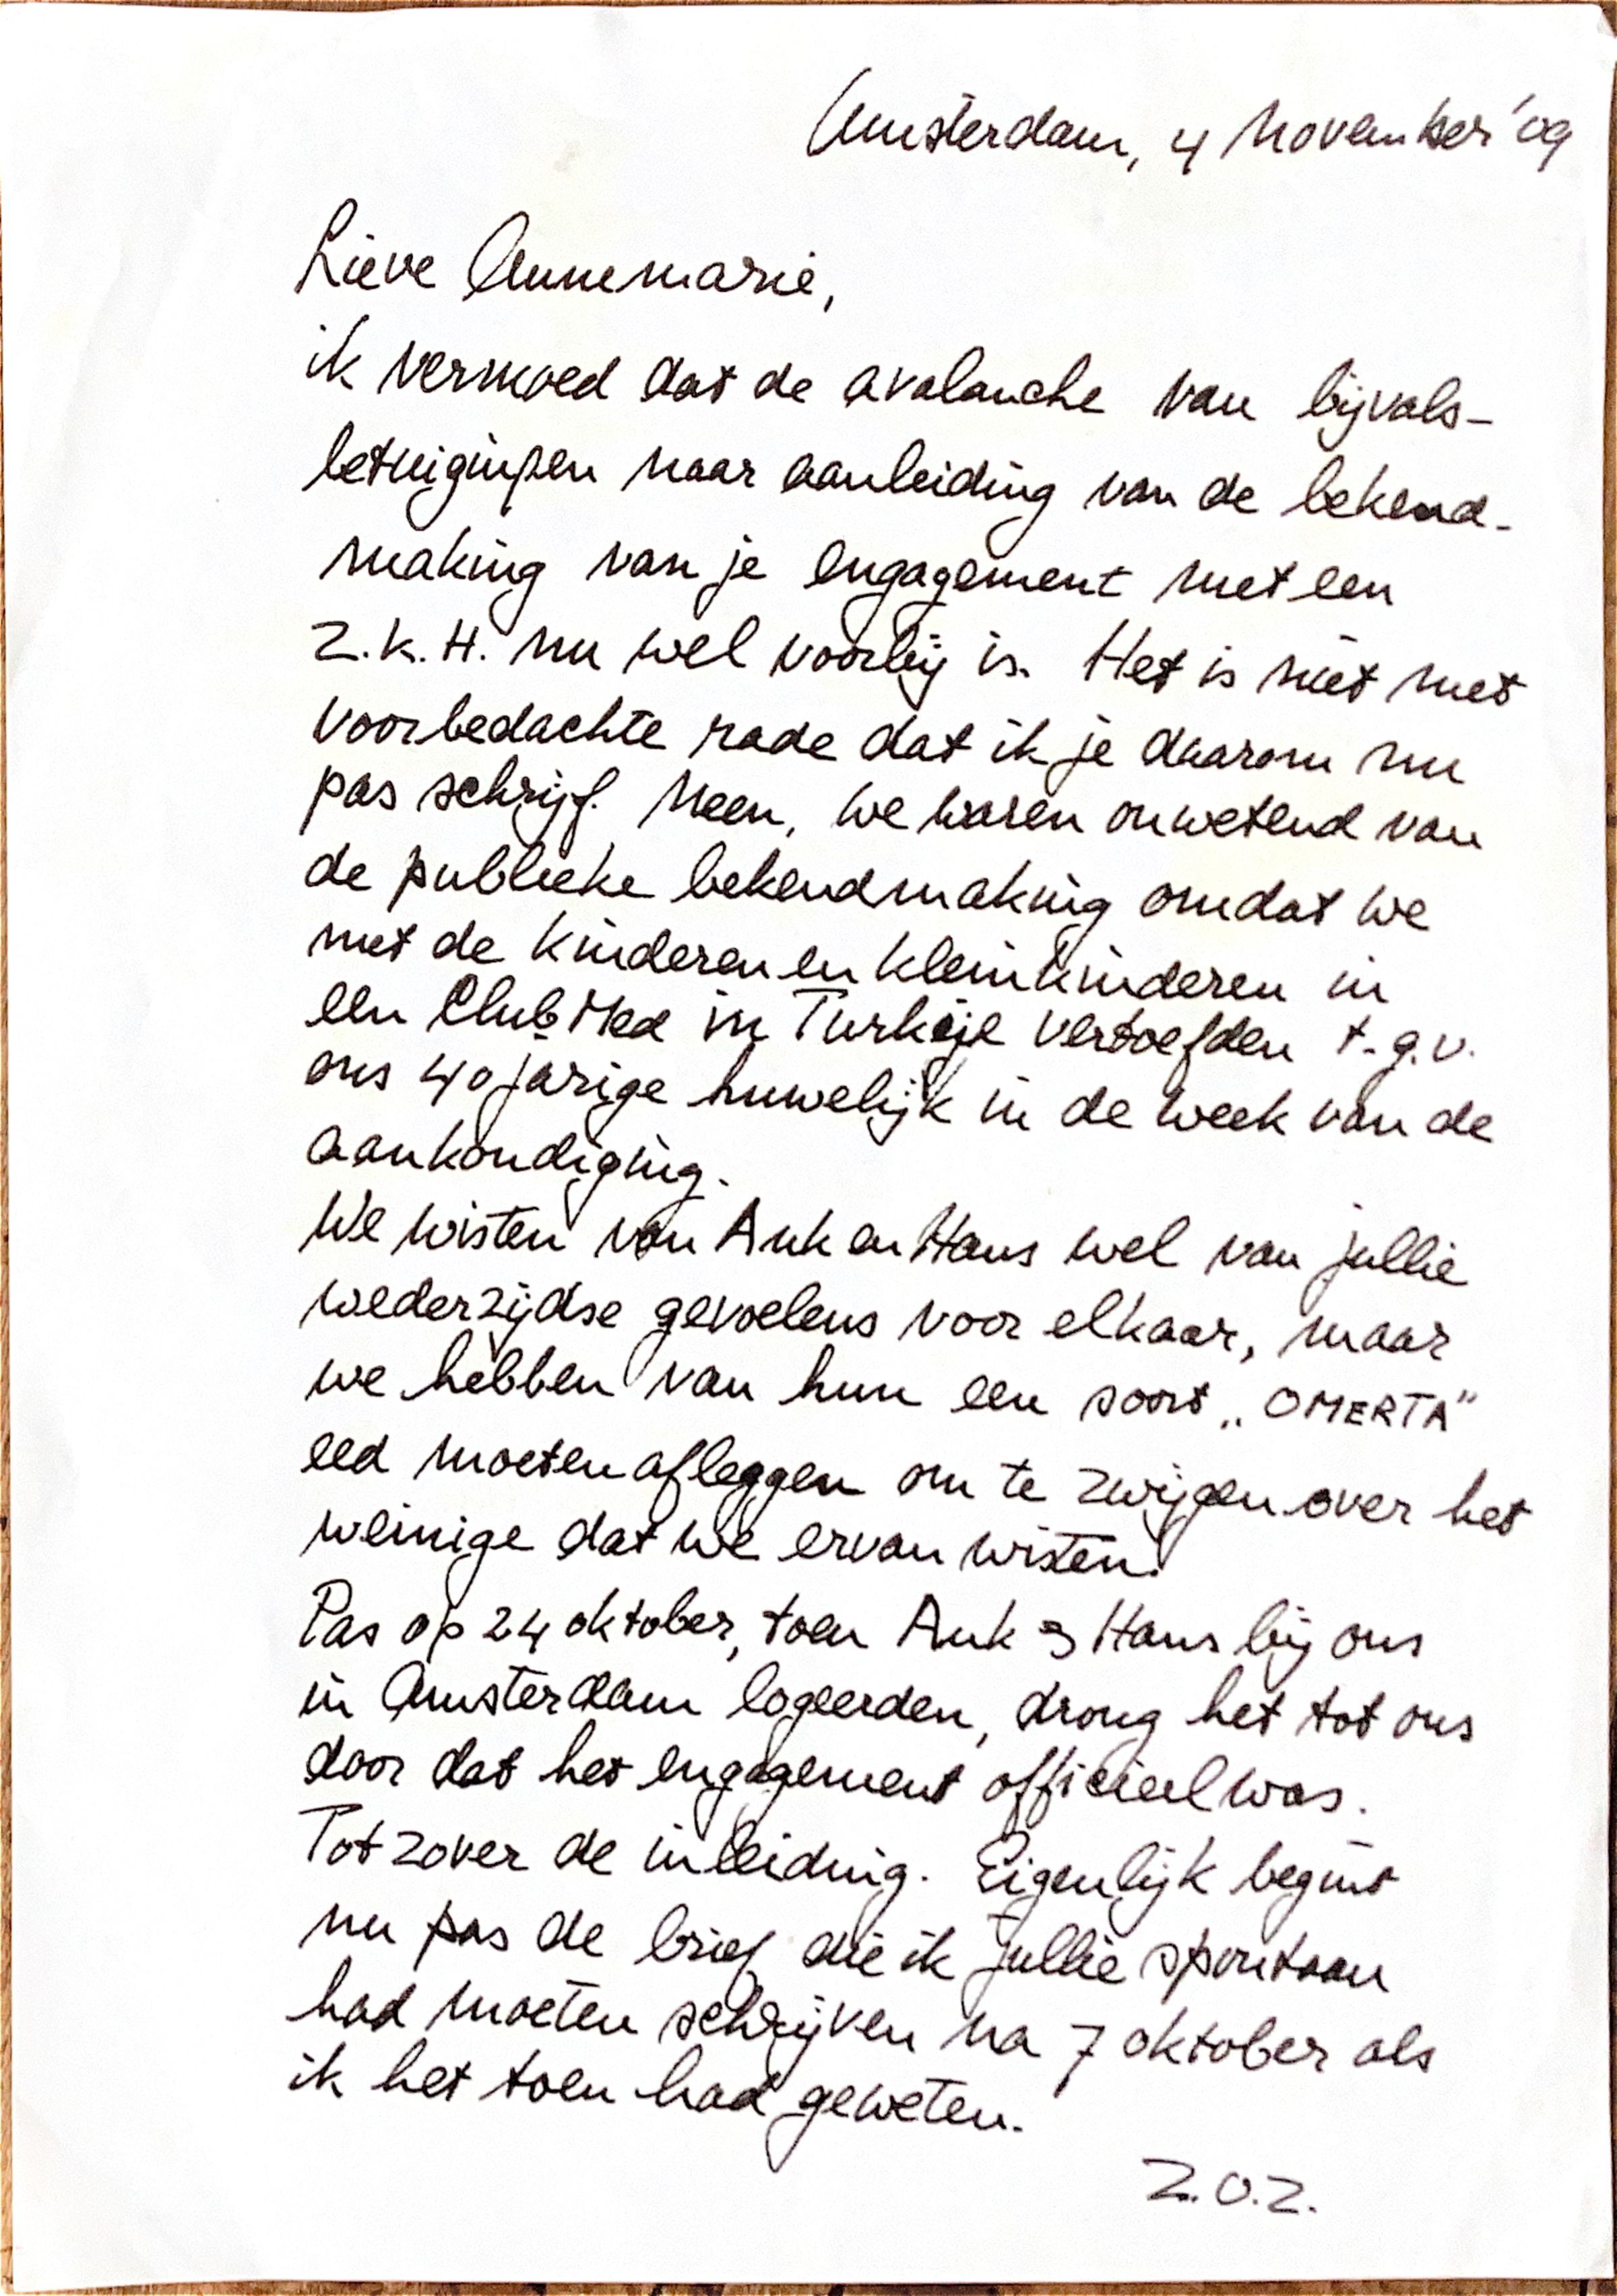 Amsterdam, 4 November '09
Lieve Annemarie,
ik vermoed dat de avalanche van bijvals-
betuigingen naar aanleiding van de bekend-
making van je engagement met een
Z.K.H. nu wel voorbij is. Het is niet met
voorbedachte rade dat ik je daarom nu
pas schrijf. Neen, we waren onwetend van
de publieke bekendmaking omdat we
met de kinderen en kleinkinderen in
een Club Med in Turkije vertoefden t.g.v.
ons 40 jarige huwelijk in de week van de
aankondiging.
We wisten van Ank en Hans wel van jullie
wederzijdse gevoelens voor elkaar, maar
we hebben van hun een soort „OMERTA"
eed moeten afleggen om te zwijgen over het
weinige dat we ervan wisten.
Pas op 24 oktober, toen Ank & Hans bij ons
in Amsterdam logeerden, drong het tot ons
door dat het engagement officieel was.
Tot zover de inleiding. Eigenlijk begint
nu pas de brief die ik jullie spontaan
had moeten schrijven na 7 oktober als
ik het toen had geweten.
Z.O.Z.